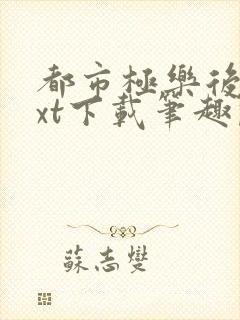 都市極樂後
xt下載筆趣
蘇志燮